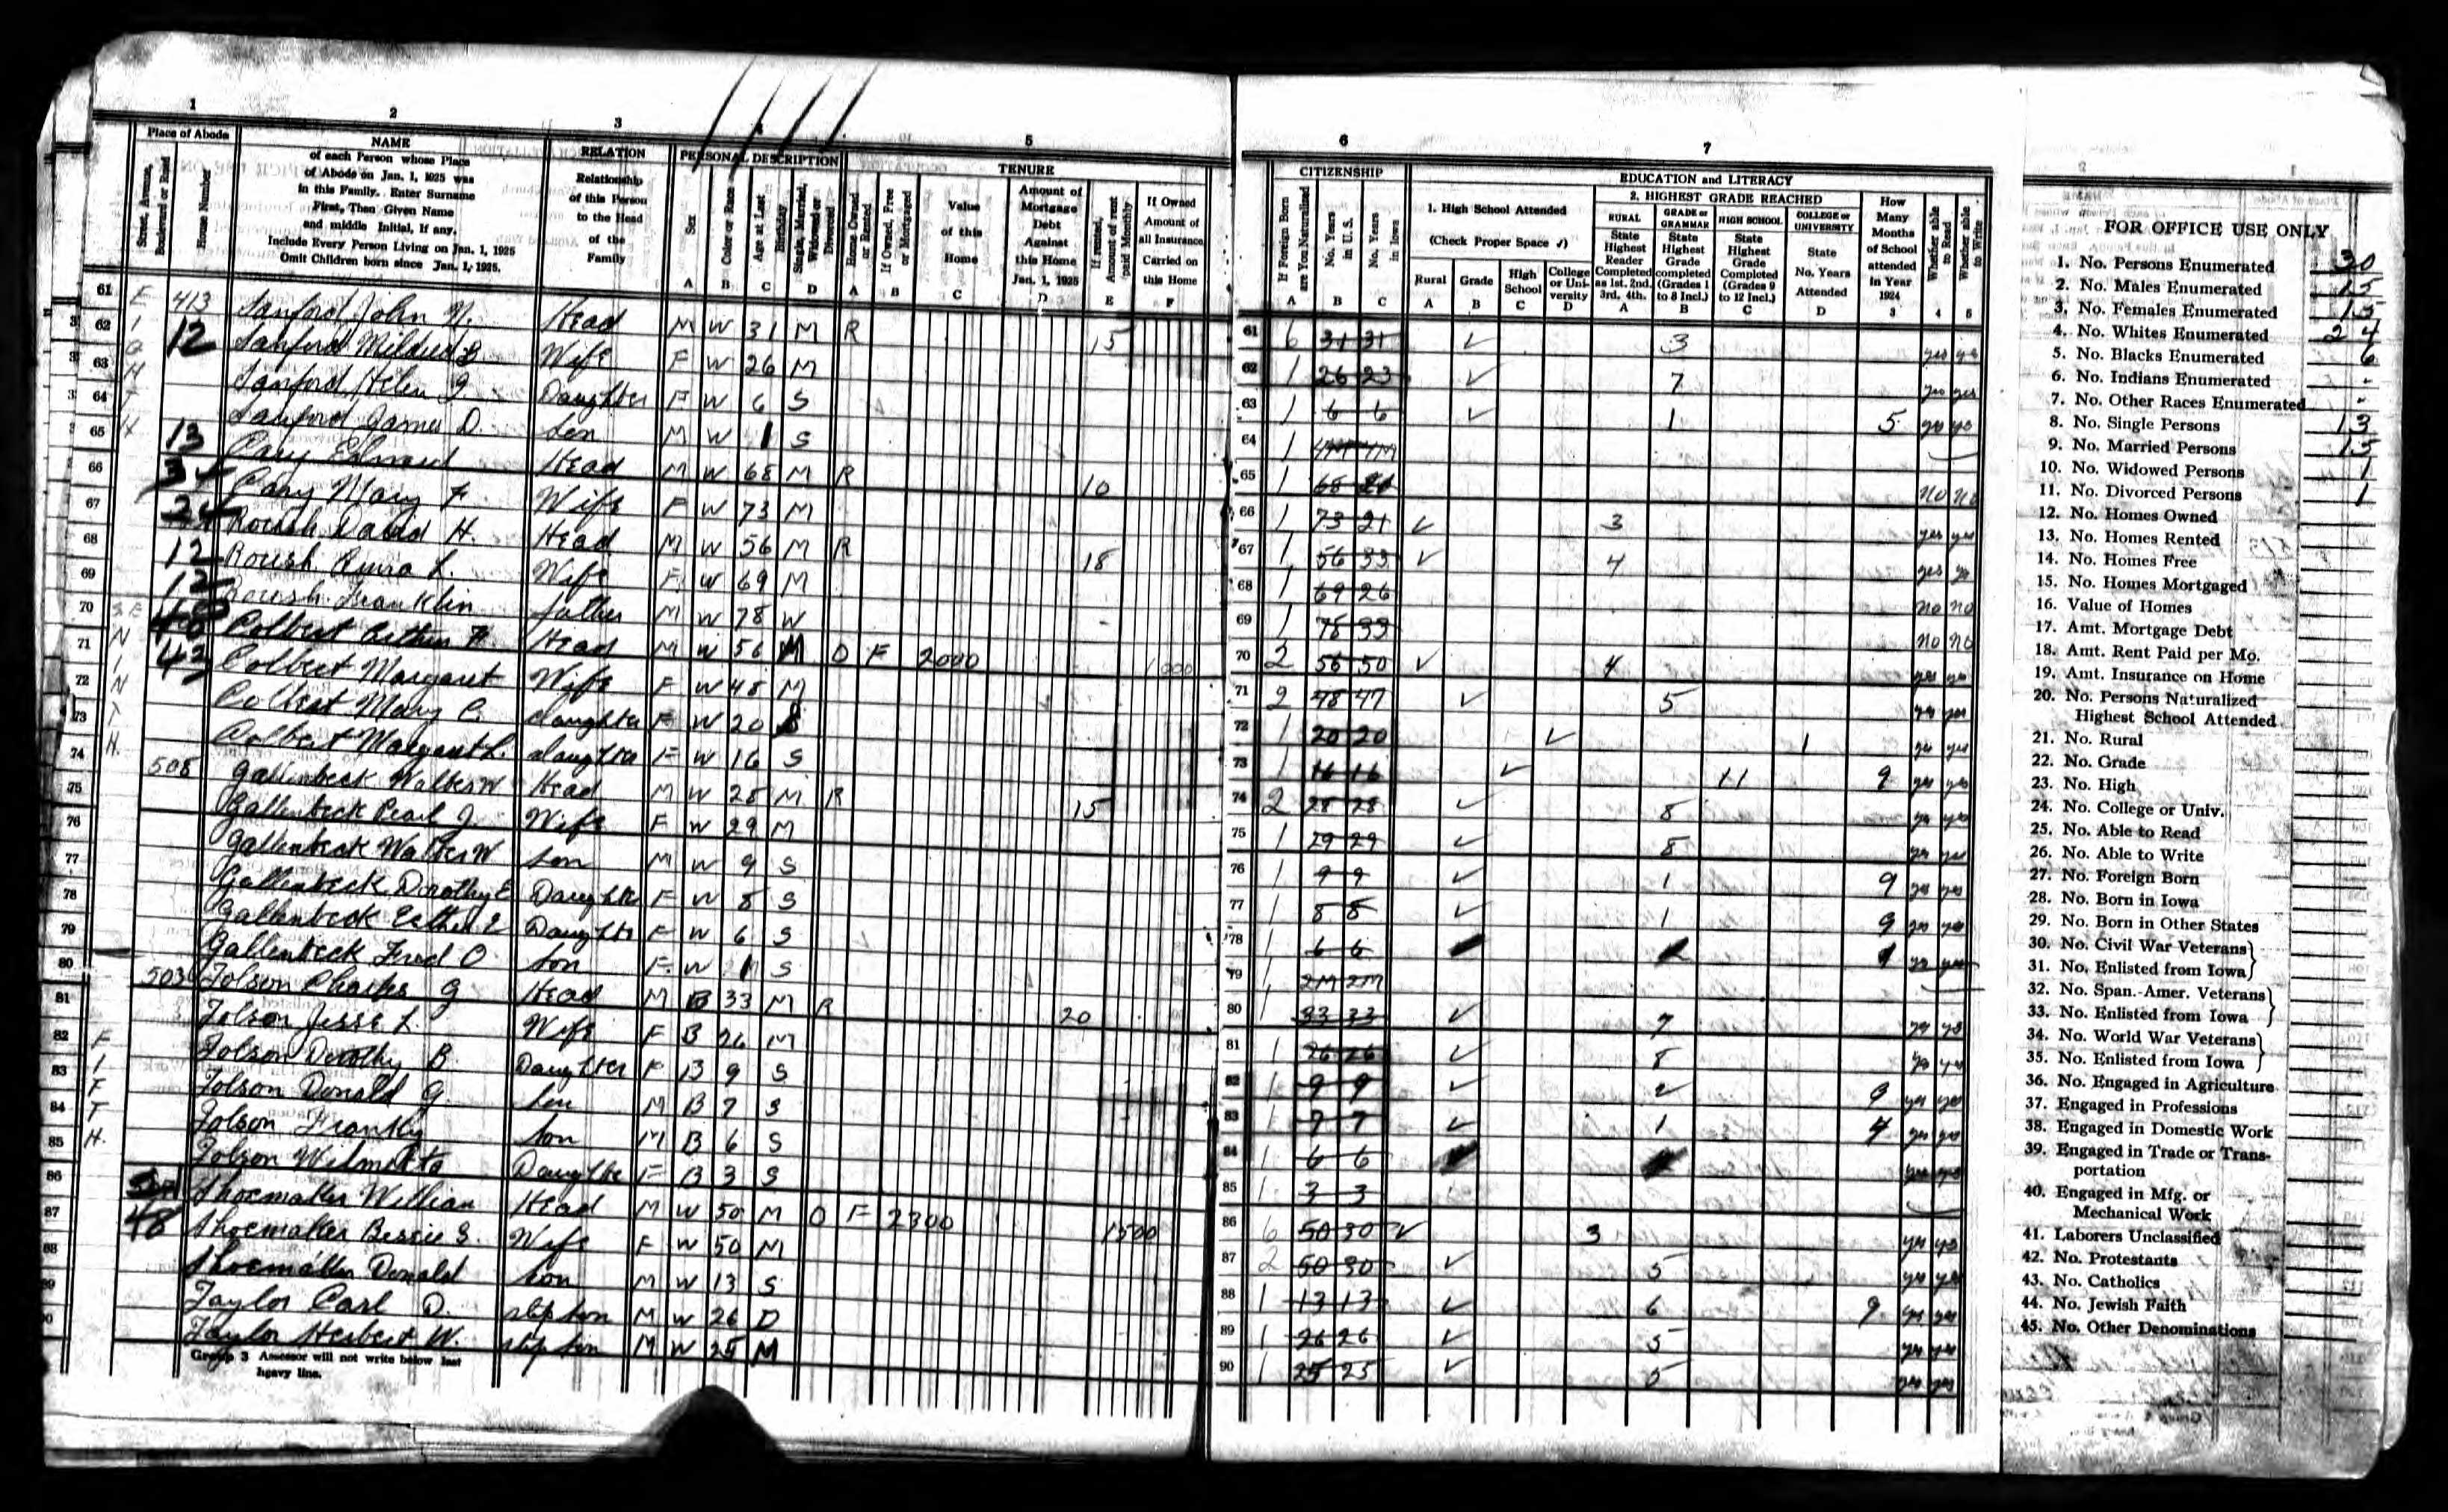 1 2 3 4 5
Place of Abode
Street, Avenue, Boulevard or Road
House Number
NAME
of each Person whose Place
of Abode on Jan. 1, 1925 was
in this Family. Enter Surname
First, Then Given Name
and middle Initial, if any.
Include Every Person Living on Jan. 1, 1925
Omit Children born since Jan. 1, 1925.
RELATION
Relationship
of this Person
to the Head
of the
Family
PERSONAL DESCRIPTION
Sex
Color or Race
Age at Last Birthday
Single, Married, Widowed or Divorced
A B C D
TENURE
Home Owned or Rented
If Owned, Free or Mortgaged
Value
of this
Home
Amount of
Mortgage
Debt
Against
this Home
Jan. 1, 1925
If rented, Amount of rent paid Monthly
If Owned
Amount of
all Insurance
Carried on
this Home
A B C D E F
61 413 Sanford John N. Head M W 31 M R 15
62 12 Sanford Mildred B. Wife F W 26 M
63 Sanford Helen J. Daughter F W 6 S
64 Sanford James D. Son M W 1 S
65 13 Cary Edward Head M W 68 M R 10
66 Cary Mary F Wife F W 73 M
67 Roush David H. Head M W 56 M R 18
68 12 Roush L. Wife F W 69 M
69 12 Roush Franklin father M W 78 W
70 Colbert Arthur Head M W 56 M O F 2000 1000
71 43 Colbert Margaret Wife F W 48 M
72 Colbert Mary C. daughter F W 20 S
73 Colbert Margaret L. daughter F W 16 S
74 508 Gallenbeck Walter W Head M W 28 M R 15
75 Gallenbeck Pearl J Wife F W 29 M
76 Gallenbeck Walter W Son M W 9 S
77 Gallenbeck Dorothy E Daughter F W 8 S
78 Gallenbeck Esther E Daughter F W 6 S
79 Gallenbeck Fred O Son F. W 1 S
80 503 Tolson Charles G Head M B 33 M R 20
81 Tolson Jesse L. Wife F B 26 M
82 Tolson Dorothy B. Daughter F B 9 S
83 Tolson Donald G. Son M B 7 S
84 Tolson Son M B 6 S
85 Tolson Wilmetta Daughter F B 3 S
86 Shoemaker William Head M W 50 M O F 2300 1500
87 48 Shoemaker Bessie S. Wife F W 50 M
88 Shoemaker Donald Son M W 13 S
89 Taylor Carl D. step son M W 26 D
90 Taylor Herbert W. step son M W 25 M
Group 3 Assessor will not write below last
heavy line.
6 7
CITIZENSHIP
If Foreign Born are You Naturalized
No. Years in U.S.
No. Years in Iowa
A B C
EDUCATION and LITERACY
1. High School Attended
(Check Proper Space ✓)
Rural
Grade
High School
College or University
A B C D
2. HIGHEST GRADE REACHED
RURAL
State Highest Reader Completed as 1st. 2nd. 3rd, 4th.
GRADE or GRAMMAR
State Highest Grade completed (Grades 1 to 8 Incl.)
HIGH SCHOOL
State Highest Grade Completed (Grades 9 to 12 Incl.)
COLLEGE or UNIVERSITY
State No. Years Attended
A B C D
How Many Months of School attended in Year 1924
Whether able to Read
Whether able to Write
3 4 5
61 6 31 31 ✓ 3 yes yes
62 1 26 23 ✓ 7 yes yes
63 1 6 6 ✓ 1 5 yes yes
64 1 4M 4M
65 1 68 No No
66 1 73 21 ✓ 3 yes yes
67 1 56 33 ✓ 4 yes yes
68 1 69 26 No No
69 1 78 33 No No
70 2 56 50 ✓ 4 yes yes
71 2 48 47 ✓ 5 yes yes
72 1 20 20 ✓ 1 yes yes
73 1 16 16 ✓ 11 9 yes yes
74 2 28 28 ✓ 8 yes yes
75 1 29 29 ✓ 8 yes yes
76 1 9 9 ✓ 1 9 yes yes
77 1 8 8 ✓ 1 9 yes yes
78 1 6 6 yes yes
79 1 2M 2M
80 1 33 33 ✓ 7 yes yes
81 1 26 26 ✓ 8 yes yes
82 1 9 9 ✓ 2 9 yes yes
83 1 7 7 ✓ 1 4 yes yes
84 1 6 6 yes yes
85 1 3 3
86 6 50 30 ✓ 3 yes yes
87 2 50 30 ✓ 5 yes yes
88 1 13 13 ✓ 6 9 yes yes
89 1 26 26 ✓ 5 yes yes
90 1 25 25 ✓ 5 yes yes
FOR OFFICE USE ONLY
1. No. Persons Enumerated 30
2. No. Males Enumerated 15
3. No. Females Enumerated 15
4. No. Whites Enumerated 24
5. No. Blacks Enumerated 6
6. No. Indians Enumerated -
7. No. Other Races Enumerated -
8. No. Single Persons 13
9. No. Married Persons 15
10. No. Widowed Persons 1
11. No. Divorced Persons 1
12. No. Homes Owned
13. No. Homes Rented
14. No. Homes Free
15. No. Homes Mortgaged
16. Value of Homes
17. Amt. Mortgage Debt
18. Amt. Rent Paid per Mo.
19. Amt. Insurance on Home
20. No. Persons Naturalized
Highest School Attended
21. No. Rural
22. No. Grade
23. No. High
24. No. College or Univ.
25. No. Able to Read
26. No. Able to Write
27. No. Foreign Born
28. No. Born in Iowa
29. No. Born in Other States
30. No. Civil War Veterans
31. No. Enlisted from Iowa
32. No. Span.-Amer. Veterans
33. No. Enlisted from Iowa
34. No. World War Veterans
35. No. Enlisted from Iowa
36. No. Engaged in Agriculture
37. Engaged in Professions
38. Engaged in Domestic Work
39. Engaged in Trade or Trans-
portation
40. Engaged in Mfg. or
Mechanical Work
41. Laborers Unclassified
42. No. Protestants
43. No. Catholics
44. No. Jewish Faith
45. No. Other Denominations